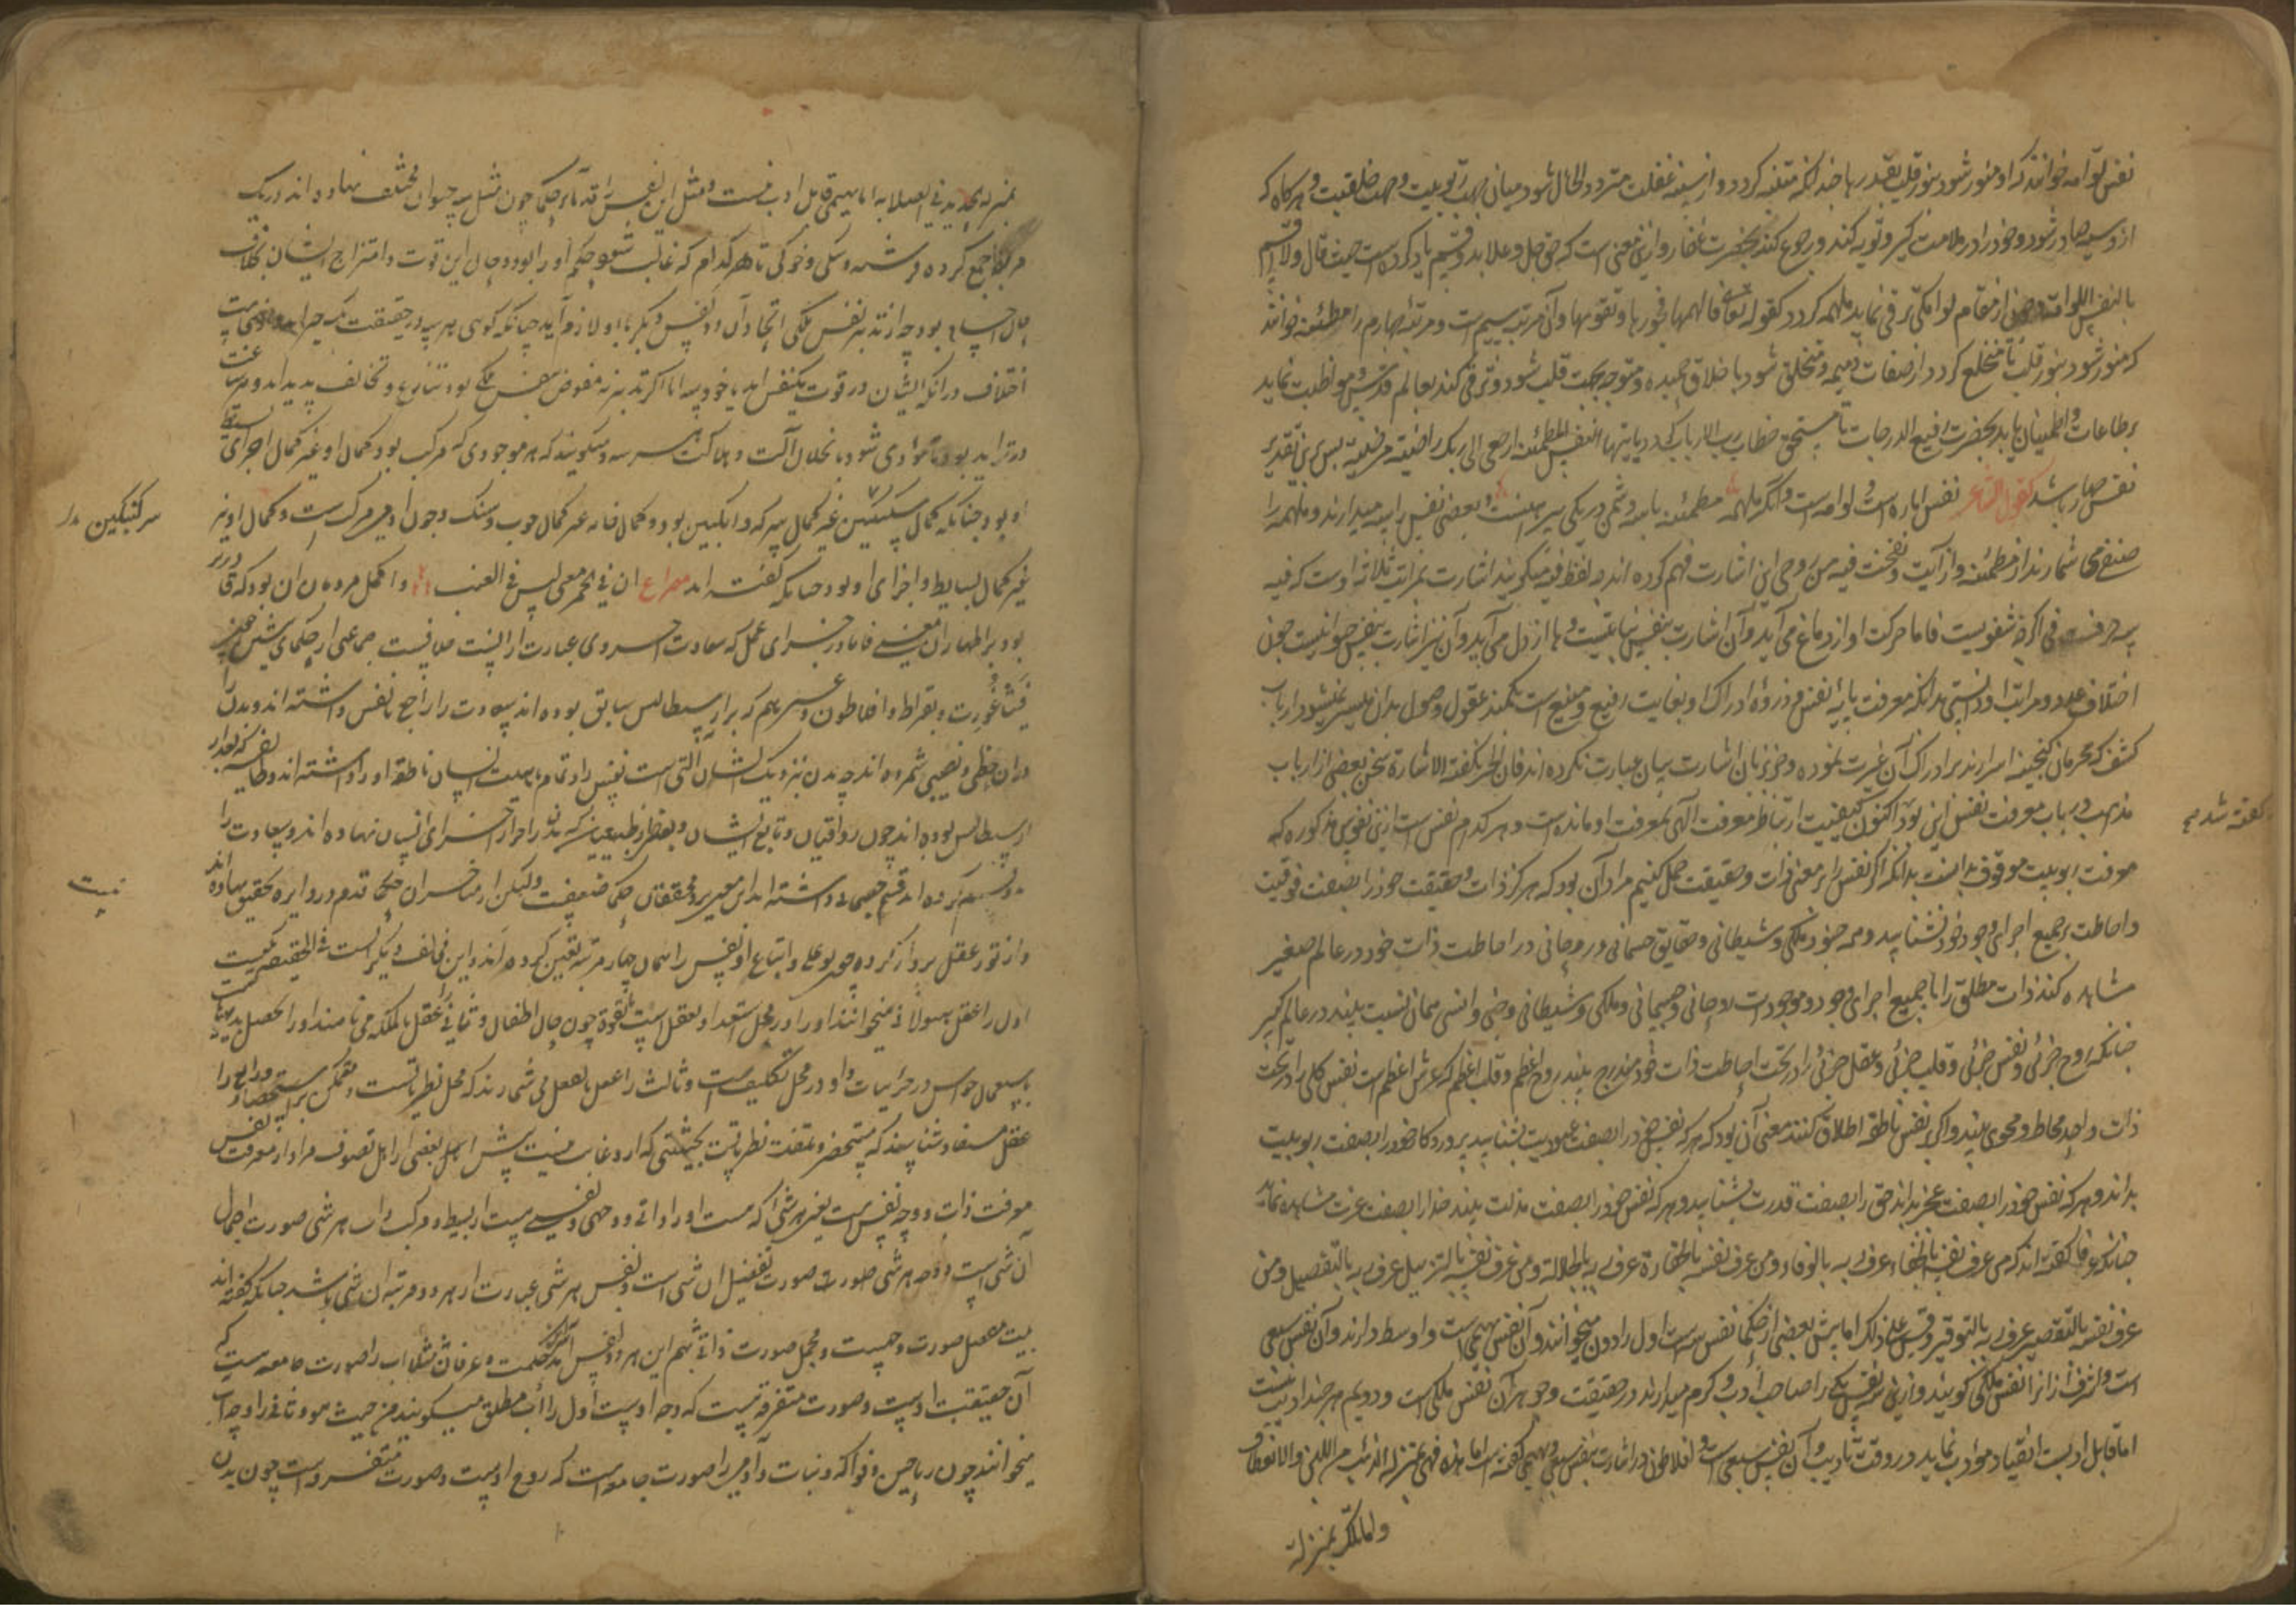 نفس لوامه خوانند که او منور شود بنور قلب بقدر رها چندانکه متنبه گردد و از سنه غفلت متردد الحال شود میان جهت ربوبیت و جهت خلقیت و هرگاه که
از و سیئه صادر شود و خود را در ملامت گیرد و توبه کند و رجوع کند بحضرت غفار و از این معنی است که حق جل و علا بدو قسم یاد کرده است حیث قال ولا اقسم
بالنفس اللوامة و چون از مقام لوامکی ترقی نماید ملهمه گردد کقوله تعالی فالهمها فجورها و تقویها و آن مرتبه سیم است و مرتبه چهارم را مطمئنه خوانند
که منور شود بنور قلب تا منخلع گردد از صفات ذمیمه و متخلق شود باخلاق حمیده و متوجه بجهت قلب شود و ترقی کند بعالم قدس و مواظبت نماید
بر طاعات و اطمینان یابد بحضرت رفیع الدرجات تا مستحق خطاب رب الارباب گردد یا ایتها النفس المطمئنة ارجعی الی ربک راضیة مرضیة پس برین تقدیر
نفس چهار باشد کقول الشاعر نفس اماره است و لوامه است و آنگه ملهمه مطمئنه با سه دشمن در یکی پیرهنست و بعضی نفس را سه میدارند و ملهمه را
صنفی شمارند از مطمئنه و از آیت و نفخت فیه من روحی این اشارت فهم کرده اند چه لفظ فیه میگویند اشارت بمراتب ثلاثه اوست که فیه
سه حرفست فی اگرچه شفویست فاما حرکت او از دماغ می آید و آن اشارت بنفس نباتیست و ها از دل می آید و آن نیز اشارت بنفس حیوانیست چون
اختلاف عدد و مراتب او دانستی بدانکه معرفت پایه نفس و ذروه ادراک او بغایت رفیع و منیع است بکمند عقول وصول بدان میسر نمیشود ارباب
کشف که محرمان گنجینه اسرارند بر ادراک آن غیرت نموده و جز بزبان اشارت بیان عبارت نکرده اند فان الحر تکفیه الاشارة سخن بعضی از ارباب
مذاهب در باب معرفت نفس این بود اکنون کیفیت ارتباط معرفت الهی بمعرفت او مانده است و هر کدام نفس است ازین نفوس مذکوره که
گفته شد
معرفت ربوبیت موقوف بدانست بدانکه اگر نفس را بر معنی ذات و حقیقت حمل کنیم مراد آن بود که هر که ذات و حقیقت خود را بصفت فوقیت
و احاطت بر جمیع اجزای وجود خود بشناسد و همه جنود ملکی و شیطانی و حقایق جسمانی و روحانی در احاطت ذات خود در عالم صغیر
مشاهده کند ذات مطلق را با جمیع اجزای وجود و موجودات روحانی و جسمانی و ملکی و شیطانی و جنی و انسی همان نسبت بیند در عالم کبیر
چنانکه روح جزئی و نفس جزئی و قلب جزئی و عقل جزئی را در تحت احاطت ذات خود مندرج بیند روح اعظم و قلب اعظم که عرش اعظم است نفس کلی را در تحت
ذات واحد محاط و محوی بیند و اگر بر نفس ناطقه اطلاق کنند معنی آن بود که هر که نفس خود را بصفت عبودیت بشناسد پروردگار خود را بصفت ربوبیت
بداند و هر که نفس خود را بصفت عجز بداند حق را بصفت قدرت بشناسد و هر که نفس خود را بصفت مذلت بیند خدا را بصفت عزت مشاهده نماید
چنانکه عرفا گفته اند که من عرف نفسه بالجفاء عرف ربه بالوفاء و من عرف نفسه بالحقارة عرف ربه بالجلالة و من عرف نفسه بالتزییل عرف ربه بالتفصیل و من
عرف نفسه بالتقصیر عرف ربه بالتوقیر وقس علی ذلک اما پیش بعضی از حکما نفس سه است اول را دون میخوانند و آن نفس بهیمی است و اوسط دارند و آن نفس سبعی
است و اشرف از انرا نفس ملکی گویند و ازین سه نفس یکی را صاحب ادب و کرم میدارند در حقیقت و جوهر آن نفس ملکی است و دویم هر چند ادیب نیست
اما قابل ادبست انقیاد مودب نماید در وقت تادیب و آن نفس سبعی است و افلاطون در اشارت بنفس سبعی و بهیمی گفته است اما هذه فهی بمنزلة الذهب من اللین والانعطاف
و اما تلک بمنزلة
بمنزله الحدید فی الصلابه اما بهیمی قابل ادب نیست و مثل این نفس را قدماء حکما چون مثل سه حیوان مختلف نهاده اند در یک
مربط جمع کرده فرشته و سکی و خوکی تا هر کدام که غالب شود حکم او را بود و حال این قوت و امتزاج ایشان بخلاف
حال اجسام بود چه از تدبیر نفس ملکی اتحاد آن دو نفس دیگر با او لازم آید چنانکه گوئی هر سه در حقیقت یک چیز
اختلاف در آنکه ایشان در قوت یک نفس اند یا خود سه اما اگر تدبیر نه مفوض بنفس ملکی بود تنازع و تخالف پدید آید و هر ساعت
در تزاید بود تا مؤدی شود بانحلال آلت و هلاکت هر سه و میگویند که هر موجودی که مرکب بود کمال او غیر کمال اجزای بسیط
او بود چنانکه کمال سکنکبین غیر کمال سرکه و انگبین بود و کمال خانه غیر کمال چوب و سنگ و چون آدمی مرکب است کمال او نیز
سرکنکبین
غیر کمال بسایط و اجزای او بود چنانکه گفته اند مصراع ان فی الخمر معنی لیس فی العنب و اکمل مردمان آن بود که قادر
بود بر اظهار آن معنی فاما در جزای عمل که سعادت اخروی عبارت از آنست خلافیست جماعتی از حکمای پیشین چون
فیثاغورث و بقراط و افلاطون و غیرهم که بر ارسطاطالیس سابق بوده اند سعادت را راجع با نفس داشته اند و بدن را
در آن حظی و نصیبی نشمرده اند چه بدن نزدیک ایشان آلتی است نفس را و تمام ماهیت انسان نفس ناطقه او را داشته اند و طایفه که بعد از
ارسطاطالیس بوده اند چون رواقیان و تابع ایشان و بعضی از طبیعیین که بدن را جزوی از اجزای انسان نهاده اند و سعادت را
دو قسم کرده اند قسم جسمی داشته اند این معنی نزد محققان حکما ضعیفست ولیکن از متأخران حکما قدم در دایره تحقیق نهاده اند
نیست
و از نور عقل پرواز کرده چون بوعلی و اتباع او نفس را همان چهار مرتبه تعیین کرده اند و این مخالف دیگر است فی الحقیقه یکیست
اول را عقل هیولانی میخوانند او را در محل استعداد تعقل است بالقوة چون حال اطفال و ثانی را عقل بالملکه می نامند او را تحصیل بدیهیات
باستعمال حواس در جزئیات و او در محل تکلیفست و ثالث را عقل بالفعل می شمارند که محل نظریاتست و متمکن بر استحضار و رابع را
عقل مستفاد شناسند که مستحضر و ملتفت نظریاتست بحیثیتی که از و غایب نیست پیش اهل بعضی از اهل تصوف مراد از معرفت نفس
معرفت ذات و وجه نفس است یعنی هر شئ که هست او را ذاتی و وجهی و نفسی هست از بسیط و مرکب ذات هر شئ صورت اجمال
آن شئ است و وجه هر شئ صورت تفصیل آن شئ است و نفس هر شئ عبارت از هر دو مرتبه آن شئ باشد چنانکه گفته اند
بیت مفصل صورت وجهست و مجمل صورت ذاتی بهم این هر دو نفس آمد بنزد حکمت و عرفان مثلا آب را صورت جامعه هست که
آن حقیقت اوست و صورت متفرقه هست که وجه اوست اول را آب مطلق میگویند من حیث هو و ثانی را وجه آب
میخوانند چون ریاحین و فواکه و نبات و آدمی را صورت جامعه است که روح اوست و صورت متفرقه است چون بدن